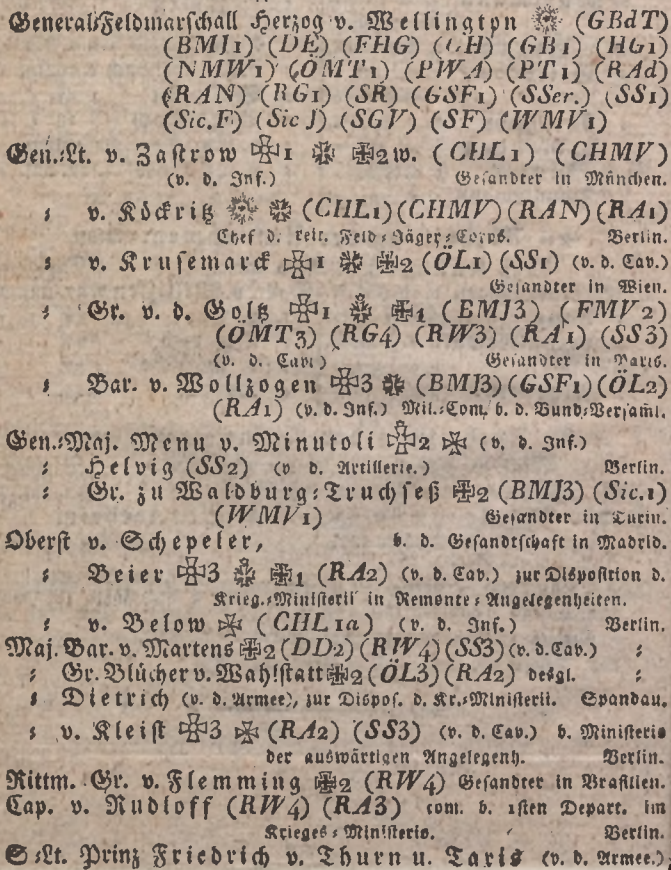 General-Feldmarschall Herzog v. Wellington (GBdT)
(BMJ1) (DE) (FHG) (GH) (GB1) (HG1)
(NMW1) (ÖMT1) (PWA) (PT1) (RAd)
(RAN) (RG1) (SR) (GSF1) (SSer.) (SS1)
(Sic.F) (Sic J) (SGV) (SF) (WMV1)
Gen.-Lt. v. Zastrow 1 2w. (CHL1) (CHMV)
(v. d. Inf.) Gesandter in München.
- v. Köckritz (CHL1)(CHMV)(RAN)(RA1)
Chef d. reit. Feld-Jäger-Corps. Berlin.
- v. Krusemarck 1 2 (ÖL1)(SS1) (v. d. Cav.)
Gesandter in Wien.
- Gr. v. d. Goltz 1 1 (BMJ3) (FMV2)
(ÖMT3) (RG4) (RW3) (RA1) (SS3)
(v. d. Cav.) Gesandter in Paris.
- Bar. v. Wollzogen 3 (BMJ3)(GSF1)(ÖL2)
(RA1) (v. d. Inf.) Mil.-Com. b. d. Bund-Versaml.
Gen.-Maj. Menu v. Minutoli 2 (v. d. Inf.)
- Helvig (SS2) (v d. Artillerie.) Berlin.
- Gr. zu Waldburg-Truchseß 2 (BMJ3) (Sic.1)
(WMV1) Gesandter in Turin.
Oberst v. Schepeler, b. d. Gesandtschaft in Madrid.
- Beier 3 1 (RA2) (v. d. Cav.) zur Disposition d.
Krieg.-Ministerii in Remonte-Angelegenheiten.
- v. Below (CHL 1a) (v. d. Inf.) Berlin.
Maj. Bar. v. Martens 2 (DD2) (RW4) (SS3) (v. d. Cav.) -
- Gr. Blücher v. Wahlstatt 2 (ÖL3) (RA2) desgl. -
- Dietrich (v. d. Armee), zur Dispos. d. Kr.-Ministerii. Spandau.
- v. Kleist 3 (RA2) (SS3) (v. d. Cav.) b. Ministerio
der auswärtigen Angelegenh. Berlin.
Rittm. Gr. v. Flemming 2 (RW4) Gesandter in Brasilien.
Cap. v. Rudloff (RW4) (RA3) com. b. 1sten Depart. im
Krieges-Ministerio. Berlin.
S.Lt. Prinz Friedrich v. Thurn u. Taxis (v. d. Armee.),